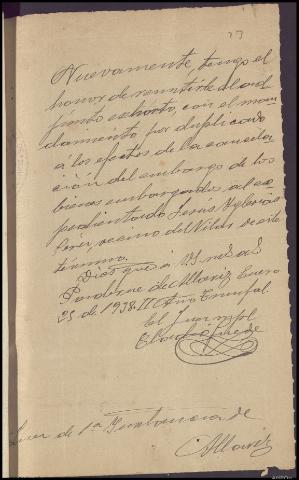 Nuevamente, tengo el
honor de remitirle el ad-
junto exhorto, con el man-
damiento por duplicado
a los efectos de la cancela-
ción del embargo de los
bienes embargados al ex-
pedientado Jesús Iglesias
Pérez, vecino del Vilar de este
término.
Dios que a V. muchos
Paderne de Allariz Enero
25 de 1938. II Año Triunfal.
El Juez mpl
Juez de 1ª Instancia de
Allariz